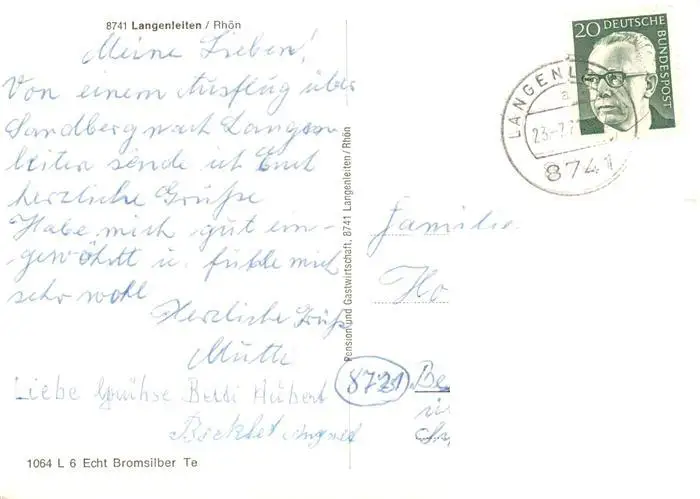 8741 Langenleiten / Rhön
Meine Lieben!
Von einem Ausflug über
Sandberg nach Langen-
leiten sende ich Euch
herzliche Grüße
Habe mich gut ein-
gewöhnt u. fühle mich
sehr wohl
Herzliche Grüße
Mutti
Liebe Hubert
1064 L 6 Echt Bromsilber Te
Pension und Gastwirtschaft, 8741 Langenleiten / Rhön
20 DEUTSCHE
BUNDESPOST
LANGENL
a
23.-7.7
8741
Familie
Ho
8721 Be